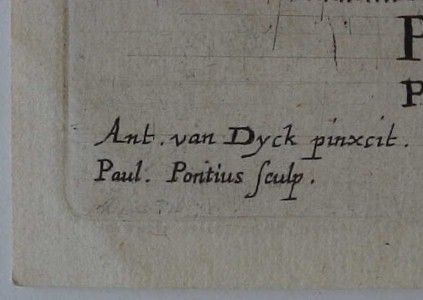 P
P
Ant. van Dyck pinxcit.
Paul. Pontius ſculp.